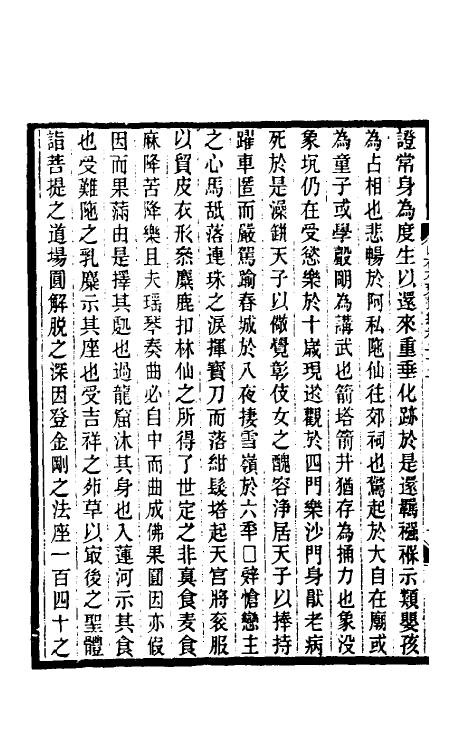 證常身為度生以還來重垂化跡於是還羈襁褓示類嬰孩
為占相也悲暢於阿私陁仙往郊祠也驚起於大自在廟或
為童子或學發唧為講武也箭塔箭井猶存為捔力也象没
象坑仍在受慾樂於十歲現遊觀於四門樂沙門身猒老病
死於是澡缾天子以儆覺彰伎女之醜容淨居天子以捧持
躍車匿而嚴駕踰春城於八夜捿雪嶺於六秊□辤愴戀主
之心馬舐落連珠之淚揮寳刀而落紺髮塔起天宮將衮服
以貿皮衣形叅麋鹿扣林仙之所得了世定之非真食麦食
麻降苦降樂且夫瑶琴奏曲必自中而曲成佛果圓因亦假
因而果滿由是擇其處也過龍窟沐其身也入蓮河示其食
也受難陁之乳糜示其座也受吉祥之茆草以㝡後之聖體
詣菩提之道場圓解脱之深因登金剛之法座一百四十之